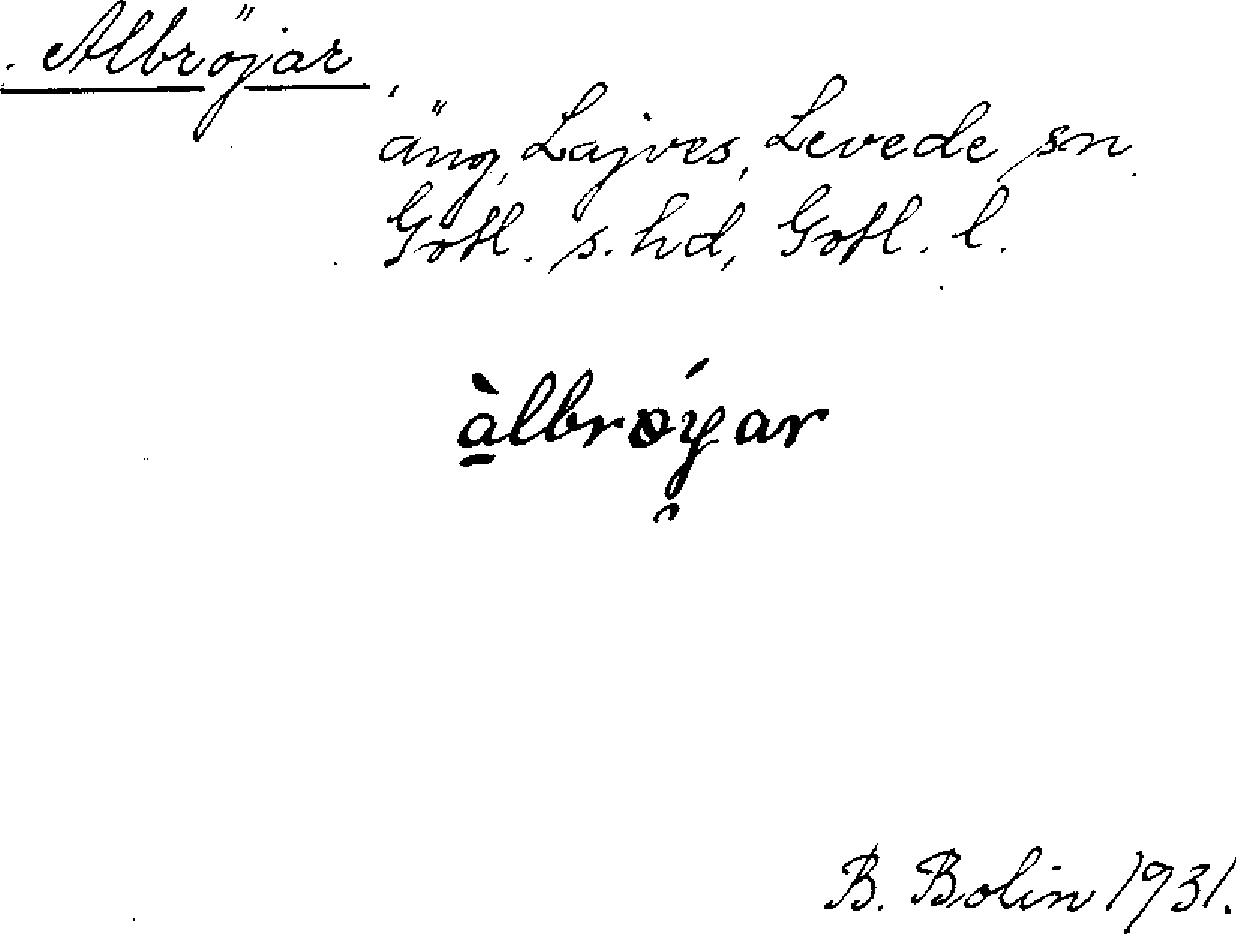 Albröjar,
äng, Lajves, Levede sn.
Gotl. s. hd, Gotl. l.
àlbrøý̯ar
B. Bolin 1931.